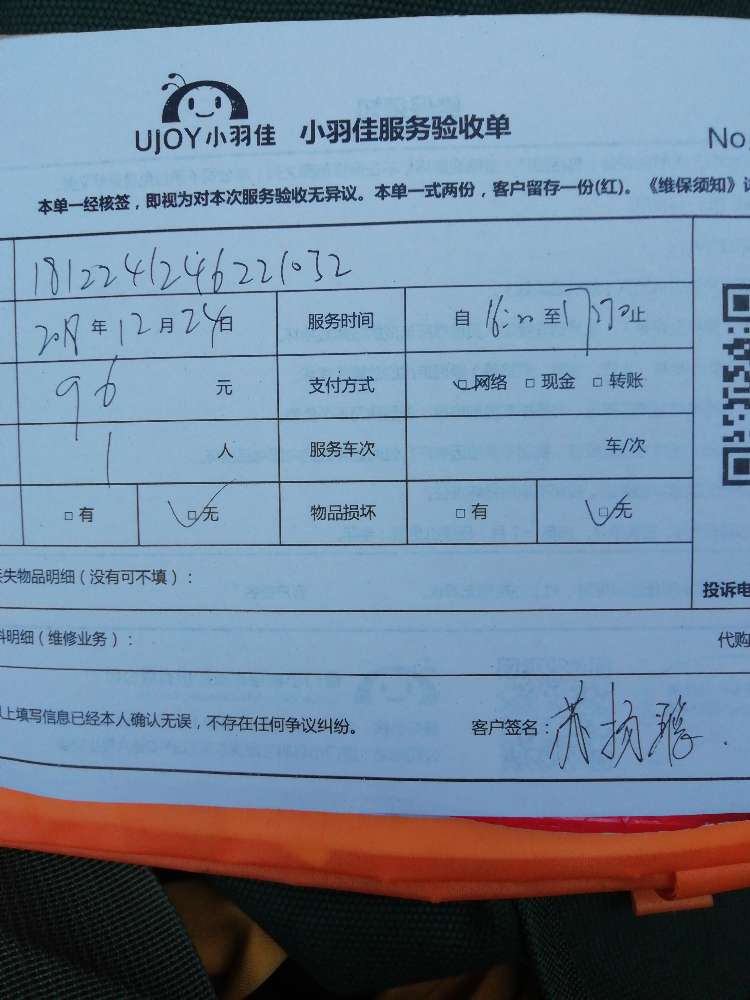 UJOY小羽佳 小羽佳服务验收单
No.
本单一经核签，即视为对本次服务验收无异议。本单一式两份，客户留存一份(红)。《维保须知》
1812241246221032
2018年12月24日 服务时间 自16:00至17:70止
96元 支付方式 □网络 □现金 □转账
1人 服务车次 车/次
□有 □无 物品损坏 □有 □无
失物品明细（没有可不填）：
投诉电
料明细（维修业务）：
代购
上填写信息已经本人确认无误，不存在任何争议纠纷。 客户签名：苏扬